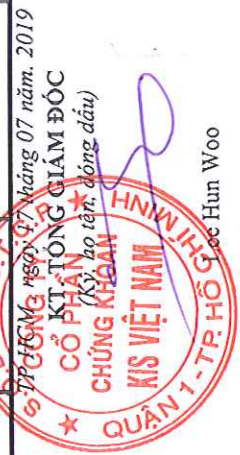 TP.HCM, ngày 17 tháng 07 năm. 2019
KT.TỔNG GIÁM ĐỐC
(Ký, họ tên, đóng dấu)
CÔNG
CỔ PHẦN
CHỨNG KHOÁN
KIS VIỆT NAM
QUẬN 1 - TP. HỒ CHÍ MINH
Loc Hun Woo